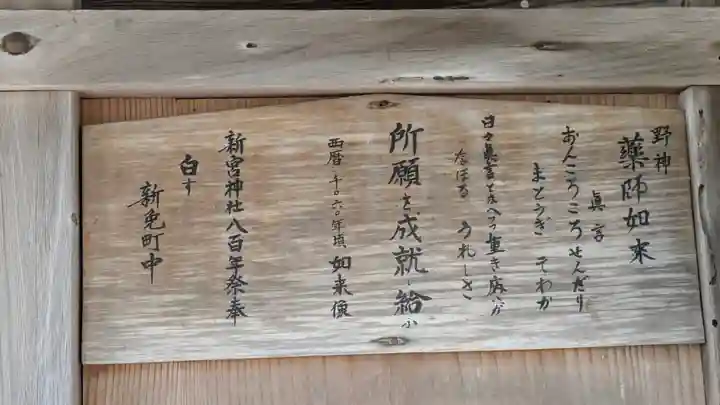 野神
薬師如来
真言
おんころころせんだり
まとうぎ そわか
日々真言をとなへつ重き病いが
なほる うれしさ
所願を成就し給ふ
西暦 千〇六〇年頃 如来像
新宮神社八百年祭奉
白す
新免町中